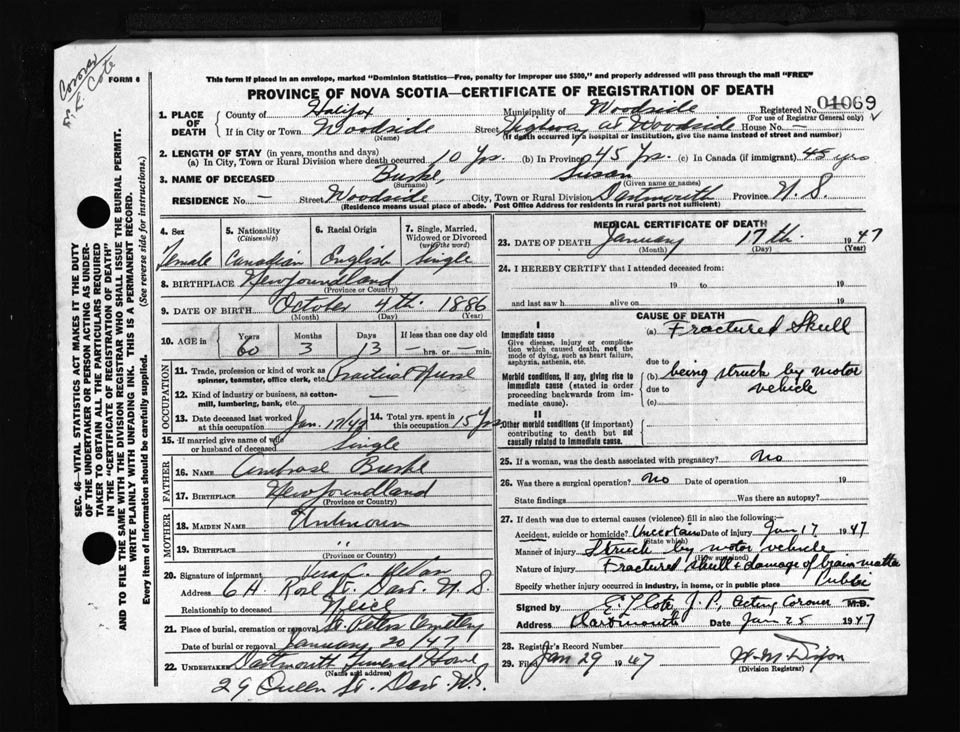 Coroner
Dr. E. Cote
FORM 6
This form if placed in an envelope, marked "Dominion Statistics—Free, penalty for improper use $300," and properly addressed will pass through the mail "FREE"
PROVINCE OF NOVA SCOTIA—CERTIFICATE OF REGISTRATION OF DEATH
SEC. 46—VITAL STATISTICS ACT MAKES IT THE DUTY
OF THE UNDERTAKER OR PERSON ACTING AS UNDER-
TAKER TO OBTAIN ALL THE PARTICULARS REQUIRED
IN THE "CERTIFICATE OF REGISTRATION OF DEATH"
AND TO FILE THE SAME WITH THE DIVISION REGISTRAR WHO SHALL ISSUE THE BURIAL PERMIT.
WRITE PLAINLY WITH UNFADING INK. THIS IS A PERMANENT RECORD.
Every item of information should be carefully supplied. (See reverse side for instructions.)
1. PLACE OF DEATH
County of Halifax Municipality of Woodside Registered No. 01069
(For use of Registrar General only)
If in City or Town Woodside Street Highway at Woodside House No. —
(Name) (If death occurred in hospital or institution, give the name instead of street and number)
2. LENGTH OF STAY (in years, months and days)
(a) In City, Town or Rural Division where death occurred 10 Yrs. (b) In Province 45 Yrs. (c) In Canada (if immigrant) 45 yrs
3. NAME OF DECEASED Burke, Susan
(Surname) (Given name or names)
RESIDENCE No. — Street Woodside City, Town or Rural Division Dartmouth Province N. S.
(Residence means usual place of abode. Post Office Address for residents in rural parts not sufficient)
4. Sex 5. Nationality (Citizenship) 6. Racial Origin 7. Single, Married, Widowed or Divorced (write the word)
Female Canadian English Single
8. BIRTHPLACE Newfoundland
(Province or Country)
9. DATE OF BIRTH October 4th. 1886
(Month) (Day) (Year)
10. AGE in Years Months Days If less than one day old
60 3 13 — hrs. or — min.
OCCUPATION
11. Trade, profession or kind of work as spinner, teamster, office clerk, etc. Practical Nurse
12. Kind of industry or business, as cotton-mill, lumbering, bank, etc. —
13. Date deceased last worked at this occupation Jan. 17/47 14. Total yrs. spent in this occupation 15 Yrs
15. If married give name of wife or husband of deceased Single
FATHER
16. NAME Ambrose Burke
17. BIRTHPLACE Newfoundland
(Province or Country)
MOTHER
18. MAIDEN NAME Unknown
19. BIRTHPLACE "
(Province or Country)
20. Signature of informant Vera C.
Address 64 Rose St. Dart. N. S.
Relationship to deceased Neice
21. Place of burial, cremation or removal St. Peters Cemetery
Date of burial or removal January 20/47
22. UNDERTAKER Dartmouth Funeral Home
(Name and address)
29 Queen St. Dart. N.S.
MEDICAL CERTIFICATE OF DEATH
23. DATE OF DEATH January 17th. 1947
(Month) (Day) (Year)
24. I HEREBY CERTIFY that I attended deceased from:
19 to 19
and last saw h alive on 19
CAUSE OF DEATH
I
Immediate cause
Give disease, injury or complication which caused death, not the mode of dying, such as heart failure, asphyxia, asthenia, etc.
(a) Fractured Skull
due to
Morbid conditions, if any, giving rise to immediate cause (stated in order proceeding backwards from immediate cause).
(b) being struck by motor vehicle
due to
(c)
II
Other morbid conditions (if important) contributing to death but not causally related to immediate cause.
25. If a woman, was the death associated with pregnancy? No
26. Was there a surgical operation? No Date of operation 19
State findings Was there an autopsy?
27. If death was due to external causes (violence) fill in also the following:—
Accident, suicide or homicide? Uncertain Date of injury Jan 17 1947
(State which)
Manner of injury Struck by motor vehicle
(How sustained)
Nature of injury Fractured skull & damage of brain matter
Specify whether injury occurred in industry, in home, or in public place Public
Signed by E Cote J. P. Acting Coroner M.D.
Address Dartmouth Date Jan 25 1947
28. Registrar's Record Number
29. Filed Jan 29 1947 W. M. Dixon
(Division Registrar)